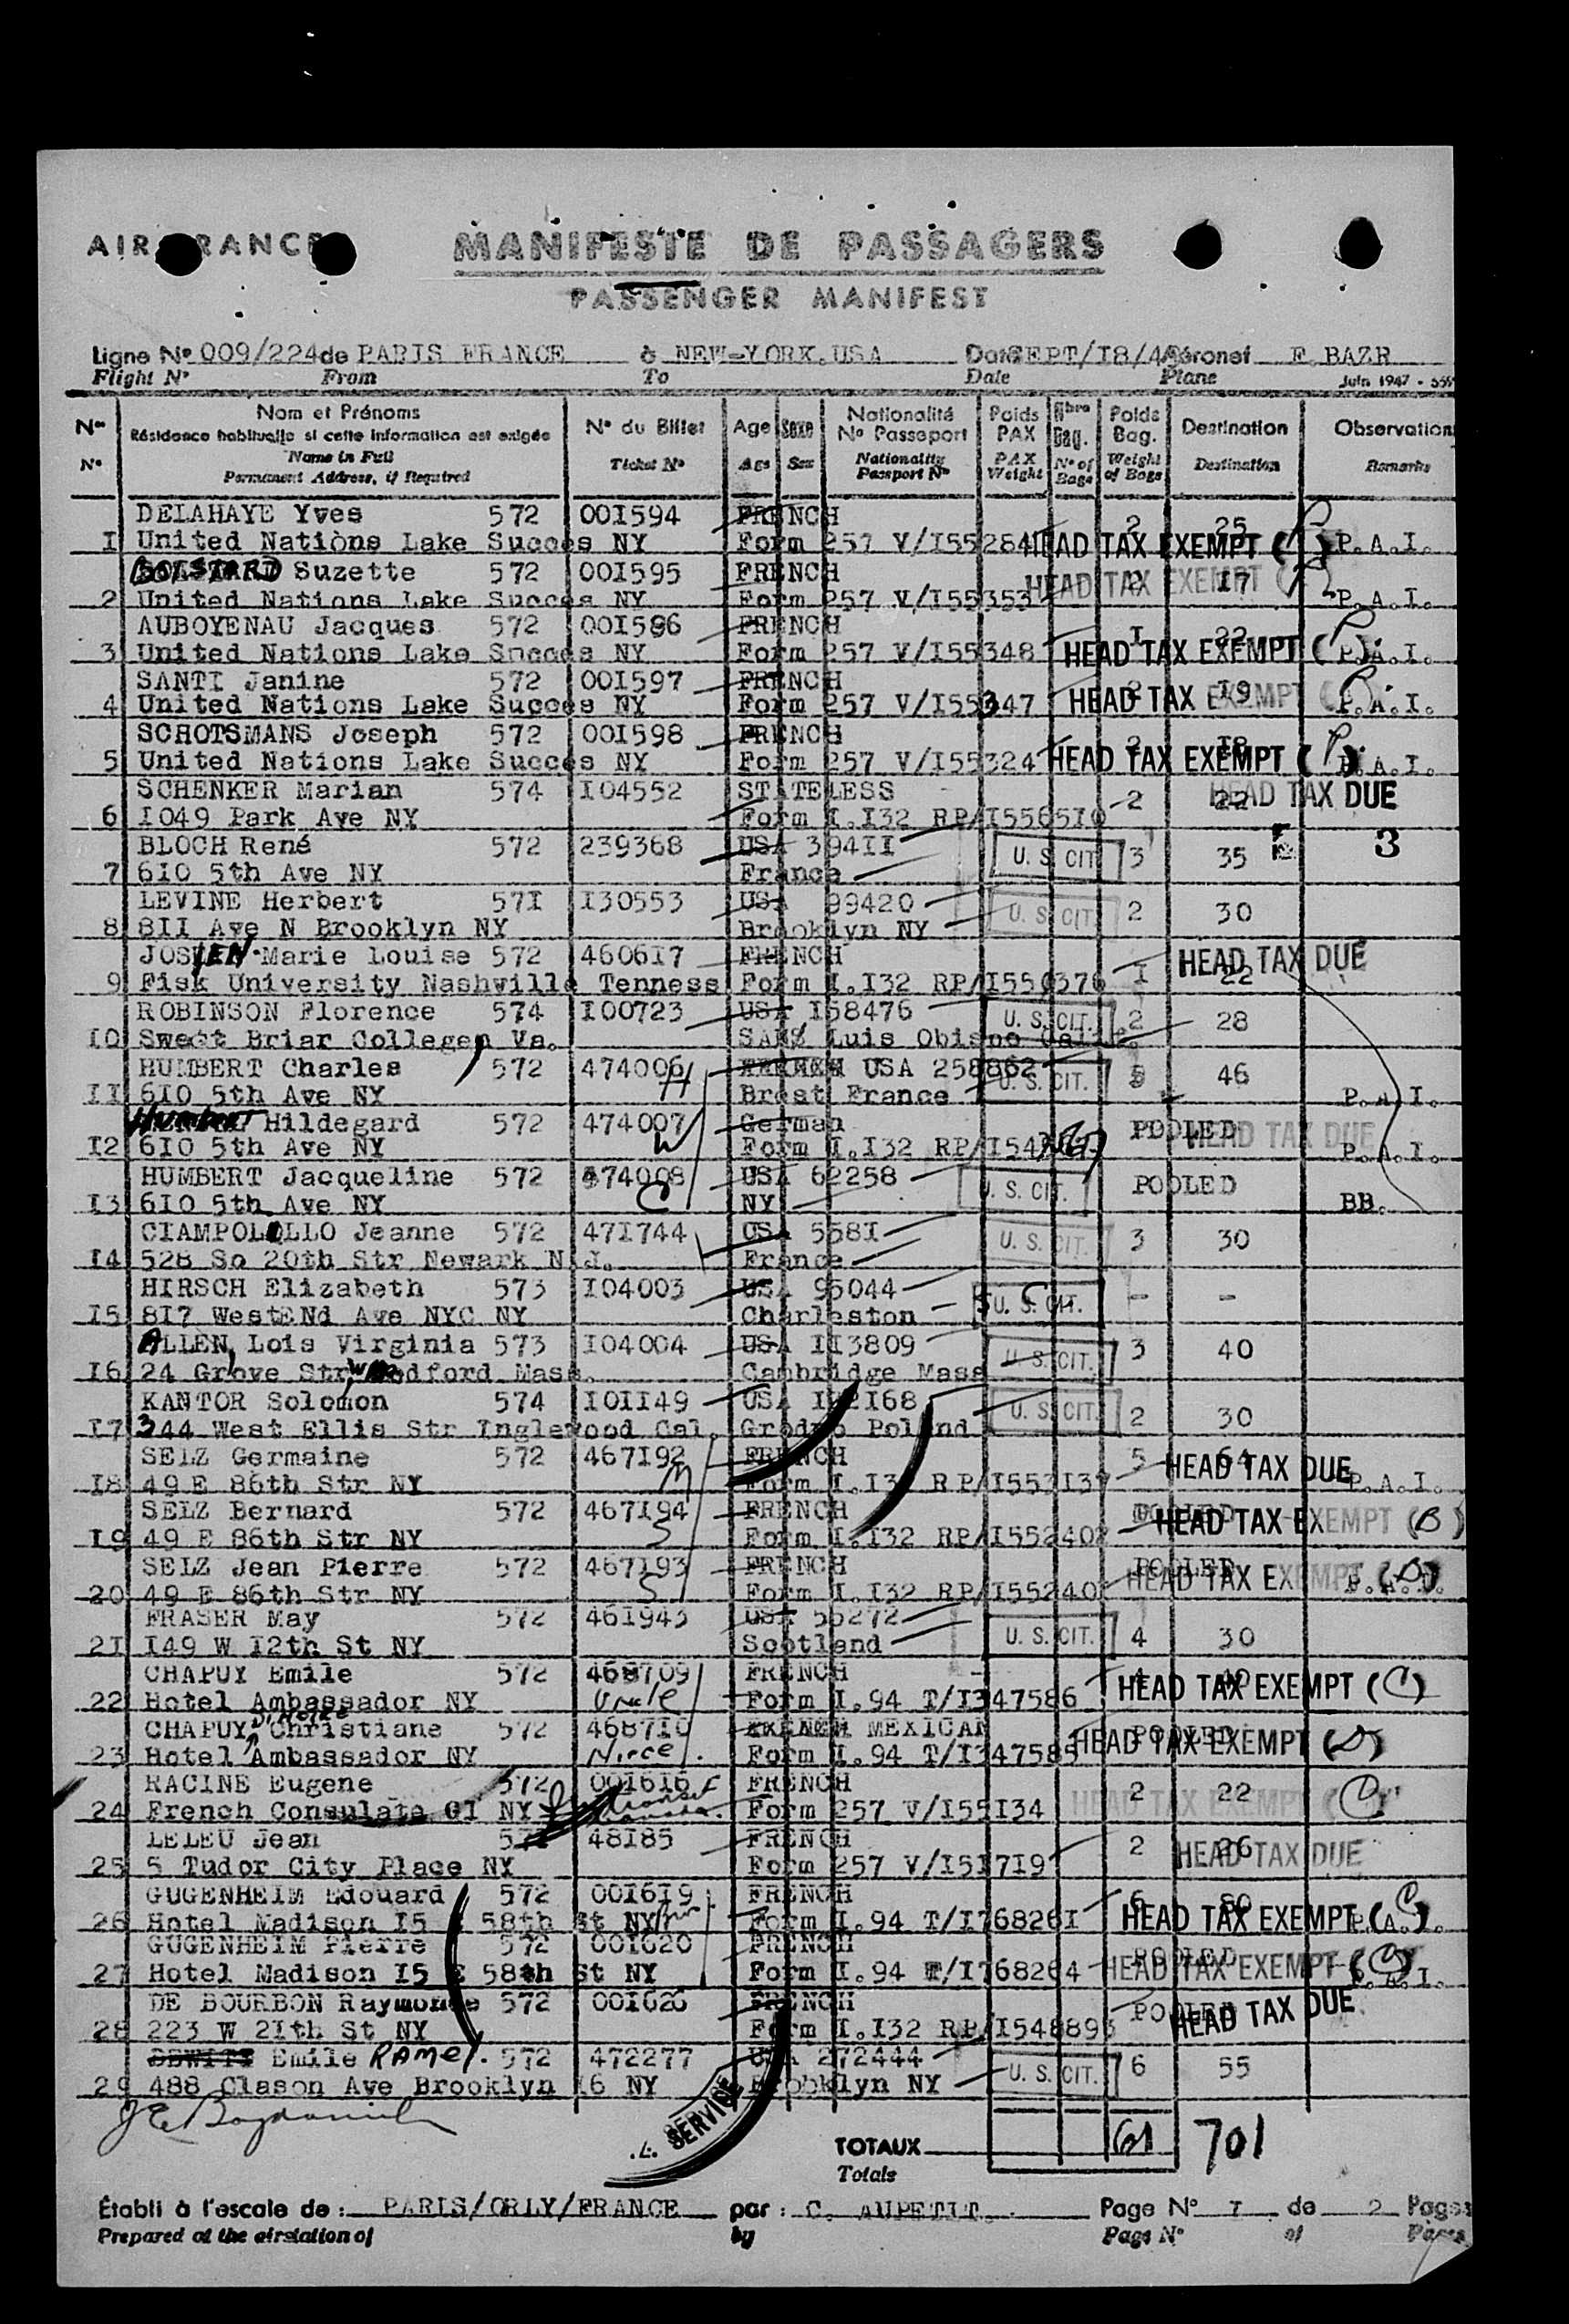 AIR FRANCE
MANIFESTE DE PASSAGERS
PASSENGER MANIFEST
Ligne N° 009/224 de PARIS FRANCE à NEW-YORK.USA Date SEPT/I8/4 Aéronef F.BAZR
Flight N° From To Date Plane Juin 1947
N° Nom et Prénoms N° du Billet Age Sexe Nationalité Poids Nbre Poids Destination Observation
Résidence habituelle si cette information est exigée N° Passeport PAX Bag. Bag.
N° Name in Full Ticket N° Age Sex Nationality PAX N° of Weight Destination Remarks
Permanent Address, if Required Passport N° Weight Bags of Bags
DELAHAYE Yves 572 00I594 FRENCH 2 25
I United Nations Lake Succes NY Form 257 V/I55284 HEAD TAX EXEMPT ( ) P.A.I.
BOISTARD Suzette 572 00I595 FRENCH 2 I7 HEAD TAX EXEMPT
2 United Nations Lake Succes NY Form 257 V/I55353 P.A.I.
AUBOYENAU Jacques 572 00I596 FRENCH I 22
3 United Nations Lake Succes NY Form 257 V/I55348 HEAD TAX EXEMPT ( ) P.A.I.
SANTI Janine 572 00I597 FRENCH 2 I9
4 United Nations Lake Succes NY Form 257 V/I55347 HEAD TAX EXEMPT P.A.I.
SCROTSMANS Joseph 572 00I598 FRENCH 2 I8
5 United Nations Lake Succes NY Form 257 V/I55324 HEAD TAX EXEMPT ( ) P.A.I.
SCHENKER Marian 574 I04552 STATELESS 2 22 HEAD TAX DUE
6 I049 Park Ave NY Form I.I32 RP/I556510
BLOCH René 572 239368 USA 394II U. S. CIT. 3 35 3
7 6I0 5th Ave NY France
LEVINE Herbert 57I I30553 USA 99420 U. S. CIT. 2 30
8 8II Ave N Brooklyn NY Brooklyn NY
JOSIEN Marie Louise 572 4606I7 FRENCH I 22 HEAD TAX DUE
9 Fisk University Nashville Tenness Form I.I32 RP/I550376
ROBINSON Florence 574 I00723 USA I58476 U. S. CIT. 2 28
I0 Sweet Briar Collegen Va. SAN Luis Obispo Calif.
HUMBERT Charles 572 474006 H USA 258862 U. S. CIT. 5 46
II 6I0 5th Ave NY Brest France P.A.I.
HUMBERT Hildegard 572 474007 W German POOLED HEAD TAX DUE
I2 6I0 5th Ave NY Form I.I32 P.A.I.
HUMBERT Jacqueline 572 474008 C USA 62258 U. S. CIT. POOLED
I3 6I0 5th Ave NY NY BB.
CIAMPOLILLO Jeanne 572 47I744 USA 558I U. S. CIT. 3 30
I4 528 So 20th Str Newark N.J. France
HIRSCH Elizabeth 573 I04003 USA 95044 U. S. CIT. - -
I5 8I7 WestENd Ave NYC NY Charleston
ALLEN, Lois Virginia 573 I04004 USA II3809 U. S. CIT. 3 40
I6 24 Grove Str, Medford Mass. Cambridge Mass
KANTOR Solomon 574 I0II49 USA I62I68 U. S. CIT. 2 30
I7 344 West Ellis Str Inglewood Cal. Grodno Poland
SELZ Germaine 572 467I92 M FRENCH 5 64 HEAD TAX DUE
I8 49 E 86th Str NY Form I.I32 RP/I553I37 P.A.I.
SELZ Bernard 572 467I94 S FRENCH POOLED HEAD TAX EXEMPT (B)
I9 49 E 86th Str NY Form I.I32 RP/I552402
SELZ Jean Pierre 572 467I93 S FRENCH POOLED HEAD TAX EXEMPT (B)
20 49 E 86th Str NY Form I.I32 RP/I55240 P.A.I.
FRASER May 572 46I943 USA 55272 U. S. CIT. 4 30
2I I49 W I2th St NY Scotland
CHAPUY Emile 572 468709 Uncle FRENCH 4 40 HEAD TAX EXEMPT (C)
22 Hotel Ambassador NY Form I.94 T/I347586
CHAPUY Christiane 572 4687I0 Niece MEXICAN POOLED HEAD TAX EXEMPT
23 Hotel Ambassador NY Form I.94 T/I347585
RACINE Eugene 572 00I616 FRENCH 2 22 HEAD TAX EXEMPT (C)
24 French Consulate GI NY Form 257 V/I55I34
LELEU Jean 48I85 FRENCH 2 26 HEAD TAX DUE
25 5 Tudor City Place NY Form 257 V/I5I7I9
GUGENHEIM Edouard 572 00I6I9 FRENCH 6 80 HEAD TAX EXEMPT (C)
26 Hotel Madison I5 E 58th St NY Form I.94 T/I76826I P.A.I.
GUGENHEIM Pierre 572 00I620 FRENCH POOLED HEAD TAX EXEMPT (C)
27 Hotel Madison I5 E 58th St NY Form I.94 T/I768264 P.A.I.
DE BOURBON Raymonde 572 00I626 FRENCH POOLED HEAD TAX DUE
28 223 W 2Ith St NY Form I.I32 RP/I548893
DEWITT Emile RAMEY. 572 472277 USA 272444 U. S. CIT. 6 55
29 488 Clason Ave Brooklyn I6 NY Brooklyn NY
SERVICE
TOTAUX 61 701
Totals
Établi à l'escale de : PARIS/ORLY/FRANCE par : C. AUPETIT. Page N° I de 2 Pages
Prepared at the airstation of by Page N° of Pages